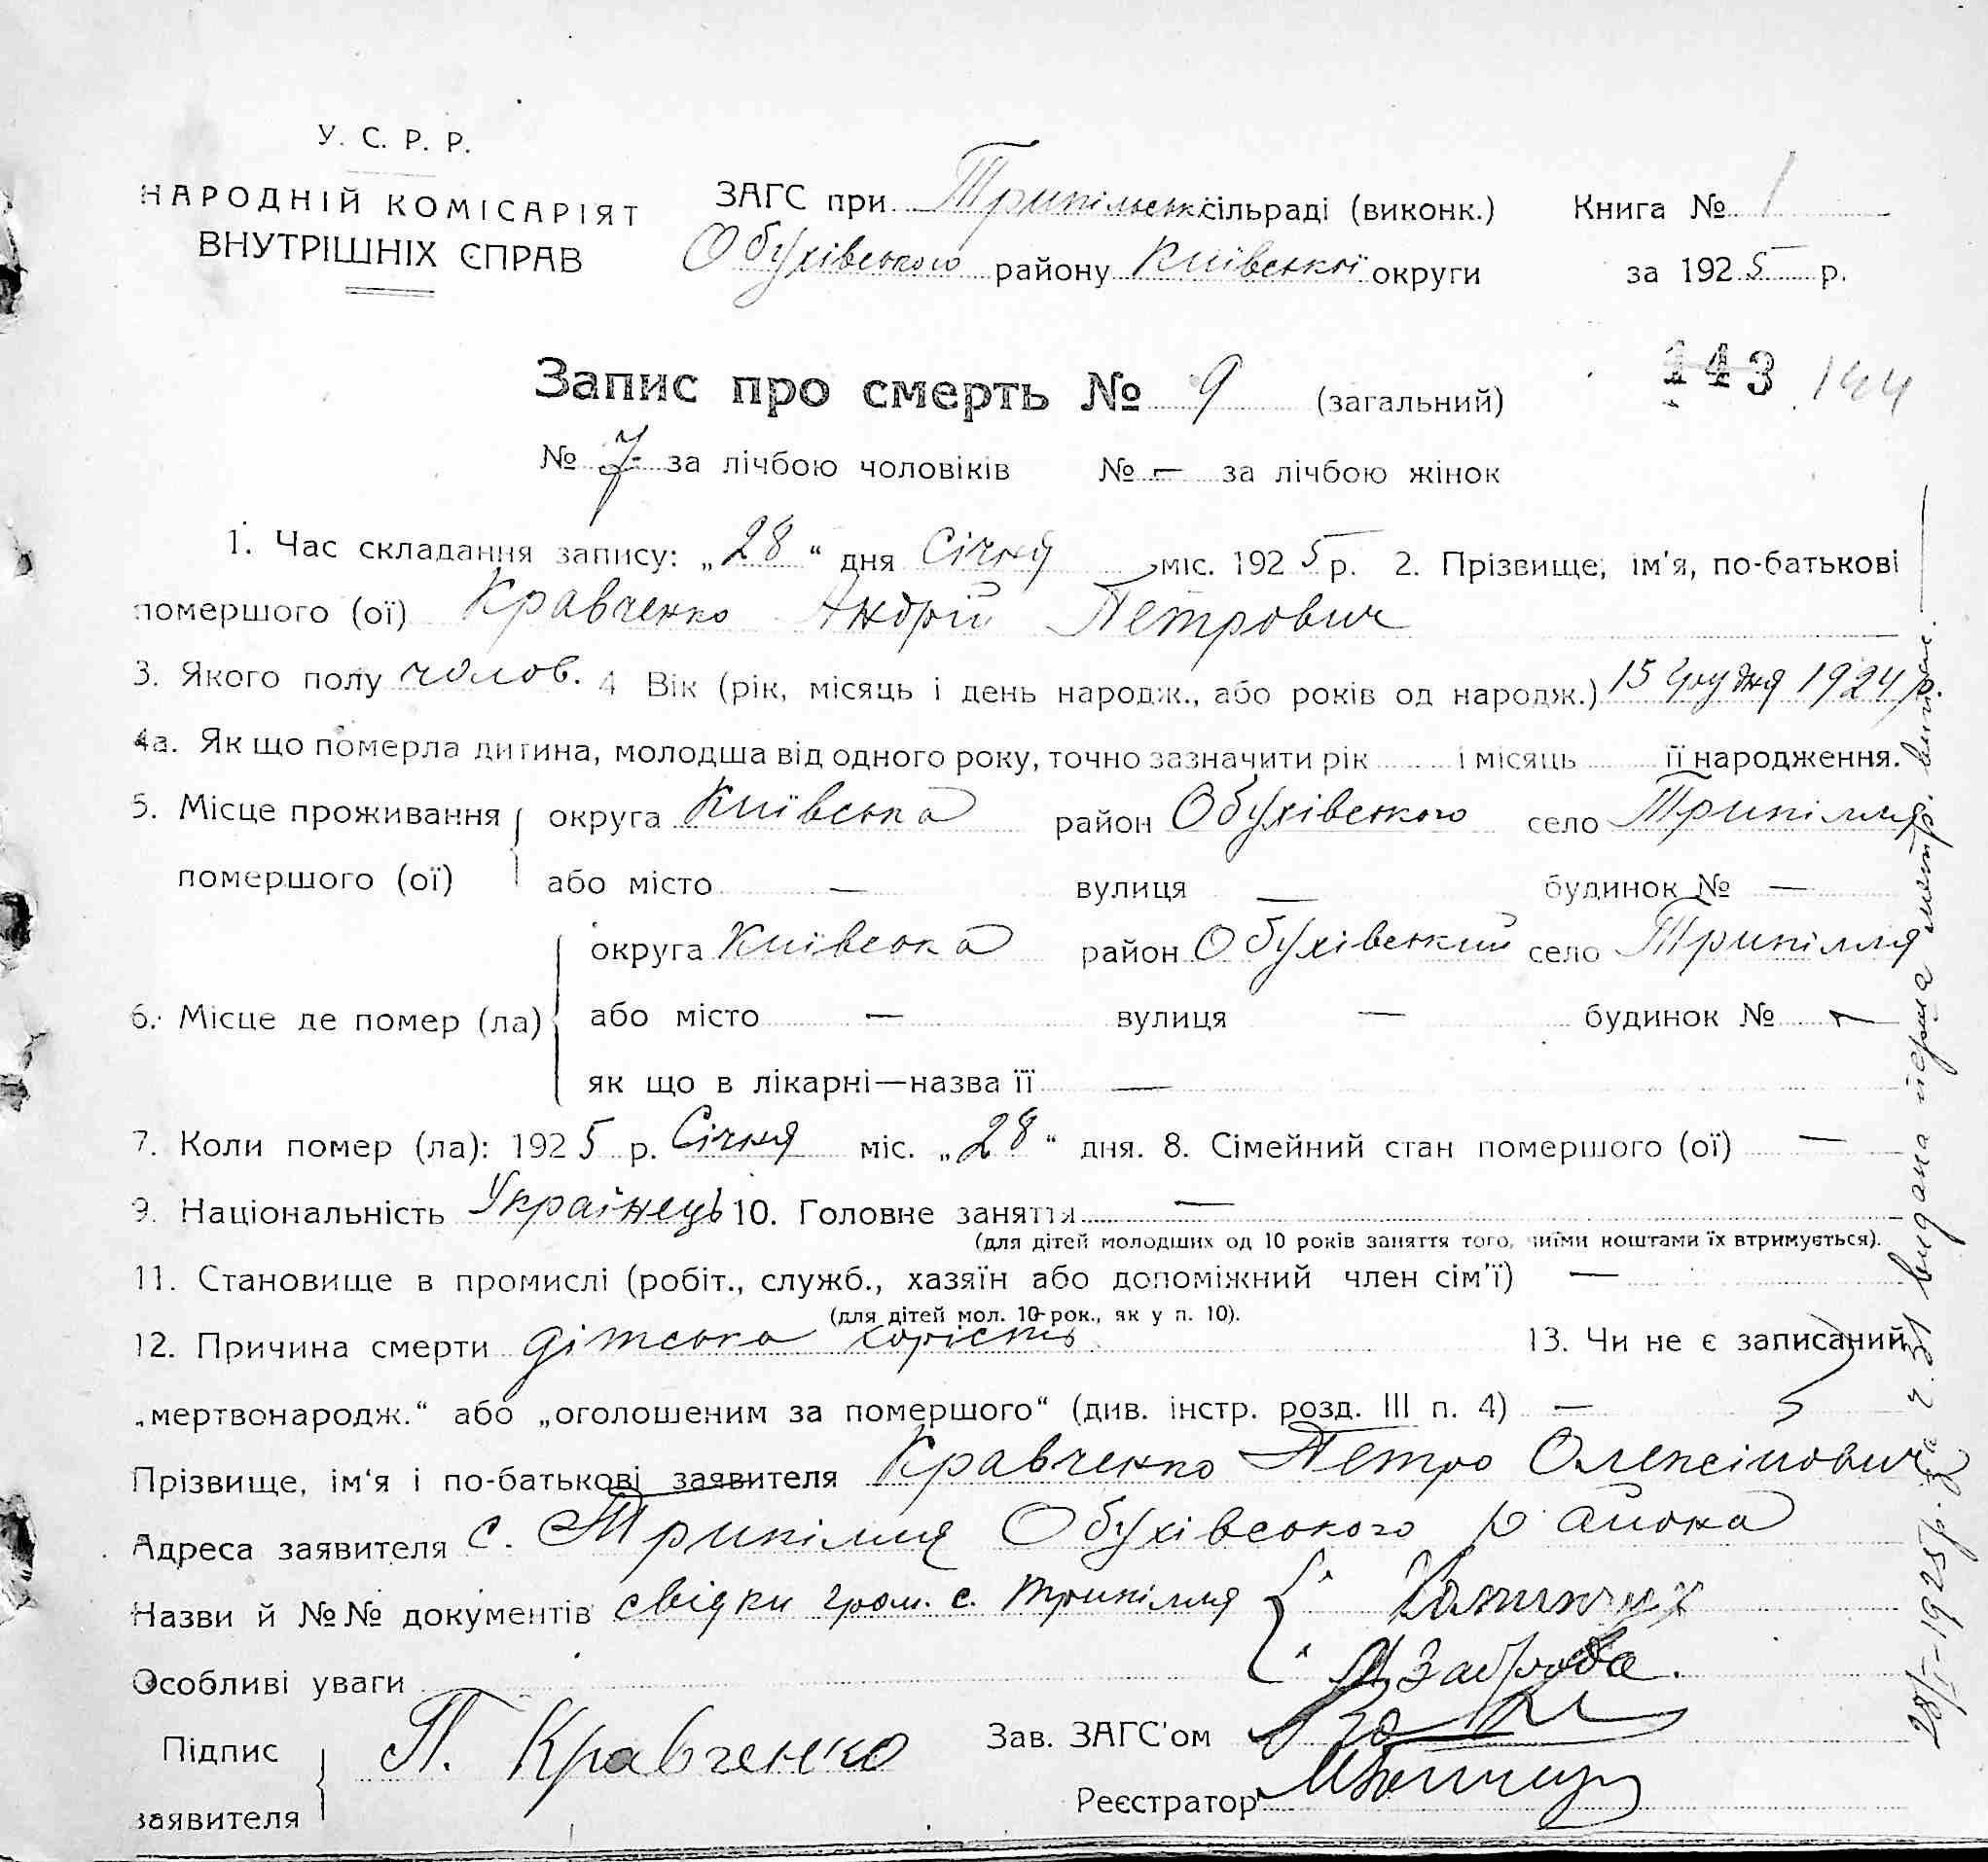 У. С. Р. Р.
НАРОДНІЙ КОМІСАРІЯТ
ВНУТРІШНІХ СПРАВ
ЗАГС при Трипільськ сільраді (виконк.)
Обухівського району Київської округи
Книга № 1
за 1925 р.
Запис про смерть № 9 (загальний)
143 144
№ 7 за лічбою чоловіків № — за лічбою жінок
1. Час складання запису: „28“ дня Січня міс. 1925 р. 2. Прізвище, ім'я, по-батькові
помершого (ої) Кравченко Андрій Петрович
3. Якого полу чолов. 4 Вік (рік, місяць і день народж., або років од народж.) 15 Грудня 1924 р.
4а. Як що померла дитина, молодша від одного року, точно зазначити рік і місяць її народження.
5. Місце проживання округа Київська район Обухівського село Трипілля
помершого (ої) або місто — вулиця — будинок № —
округа Київська район Обухівський село Трипілля
6. Місце де помер (ла) або місто — вулиця — будинок № —
як що в лікарні—назва її —
7. Коли помер (ла): 1925 р. Січня міс. „28“ дня. 8. Сімейний стан помершого (ої) —
9. Національність Українець 10. Головне заняття —
(для дітей молодших од 10 років заняття того, чиїми коштами їх втримується).
11. Становище в промислі (робіт., служб., хазяїн або допоміжний член сім'ї) —
(для дітей мол. 10-рок., як у п. 10).
12. Причина смерти дітська хорість 13. Чи не є записаний
„мертвонародж.“ або „оголошеним за помершого“ (див. інстр. розд. III п. 4) —
Прізвище, ім'я і по-батькові заявителя Кравченко Петро Олексійович
Адреса заявителя с. Трипілля Обухівського района
Назви й №№ документів свідки гром. с. Трипілля
Особливі уваги
Підпис
заявителя П. Кравченко
Зав. ЗАГС'ом
Реєстратор
28/I-1925 р. за ч. 31 видана перша метр. випис.